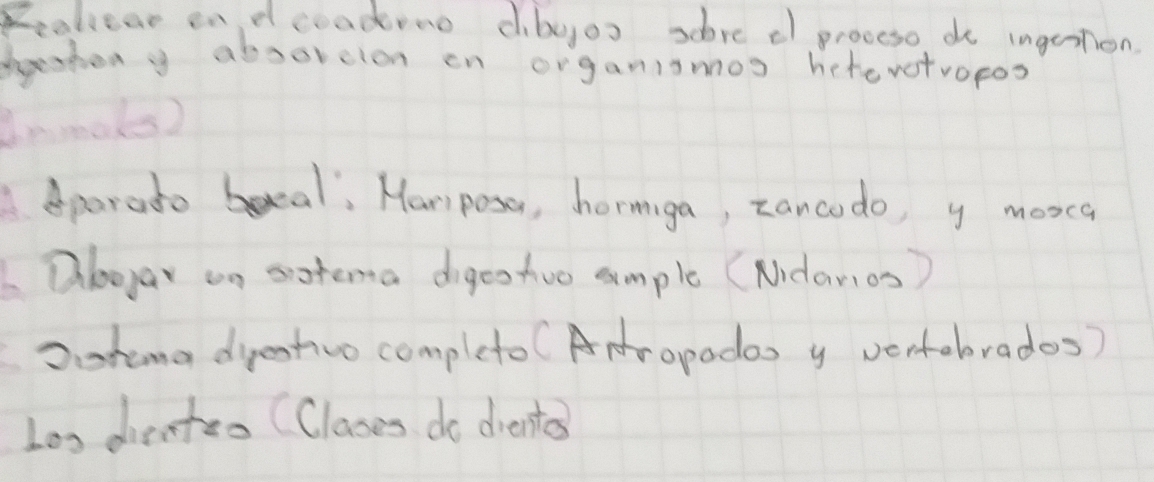 Realicar en el cuaderno dibujos sobre el proceso de ingestion.
digestion y absorcion en organismos heterotrofos
Animales)
A Aparato bocal: Mariposa, hormiga, zancudo, y mosca
b Dibujar un sistema digestivo simple (Nidarios)
c Sistema digestivo completo (Artropodos y vertebrados)
Los dientes (Clases de dientes)